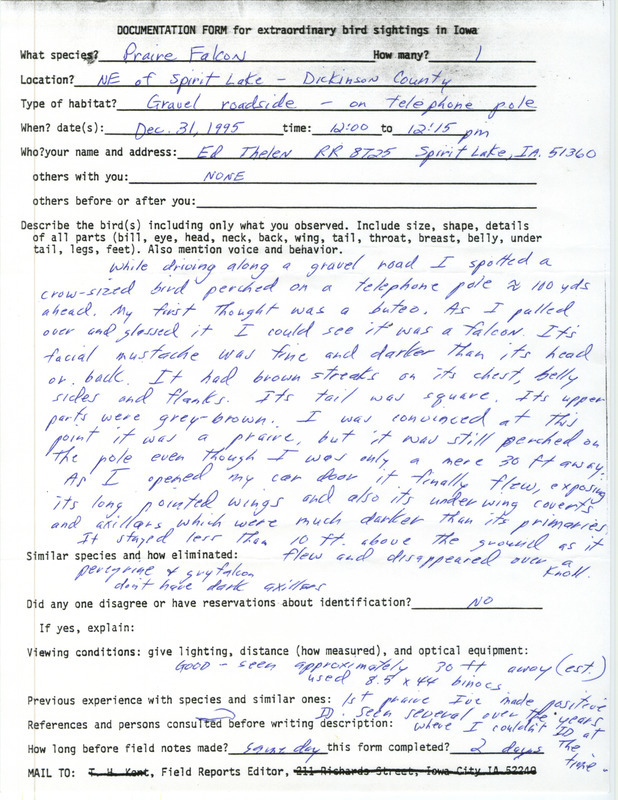 DOCUMENTATION FORM for extraordinary bird sightings in Iowa
What species? Praire Falcon How many? 1
Location? NE of Spirit Lake - Dickinson County
Type of habitat? Gravel roadside - on telephone pole
When? date(s): Dec. 31, 1995 time: 12:00 to 12:15 pm
Who?your name and address: Ed Thelen RR 8725 Spirit Lake, IA. 51360
others with you: NONE
others before or after you:
Describe the bird(s) including only what you observed. Include size, shape, details
of all parts (bill, eye, head, neck, back, wing, tail, throat, breast, belly, under
tail, legs, feet). Also mention voice and behavior.
While driving along a gravel road I spotted a
crow-sized bird perched on a telephone pole ≈ 100 yds
ahead. My first thought was a buteo. As I pulled
over and glassed it I could see it was a falcon. Its
facial mustache was fine and darker than its head
or back. It had brown streaks on its chest, belly
sides and flanks. Its tail was square. Its upper
parts were grey-brown. I was convinced at this
point it was a praire, but it was still perched on
the pole even though I was only a mere 30 ft away.
As I opened my car door it finally flew, exposing
its long pointed wings and also its under wing coverts
and axillars which were much darker than its primaries.
It stayed less than 10 ft. above the ground as it
Similar species and how eliminated: flew and disappeared over a
knoll.
peregrine & gryfalcon
don't have dark axillars
Did any one disagree or have reservations about identification? NO
If yes, explain:
Viewing conditions: give lighting, distance (how measured), and optical equipment:
Good - seen approximately 30 ft away (est.)
used 8.5 x 44 binocs
Previous experience with species and similar ones: 1st praire I've made positive
ID. Seen several over the years
References and persons consulted before writing description: where I couldn't ID at
the
How long before field notes made? same day this form completed? 2 days
time.
MAIL TO: T. H. Kent, Field Reports Editor, 211 Richards Street, Iowa City IA 52240